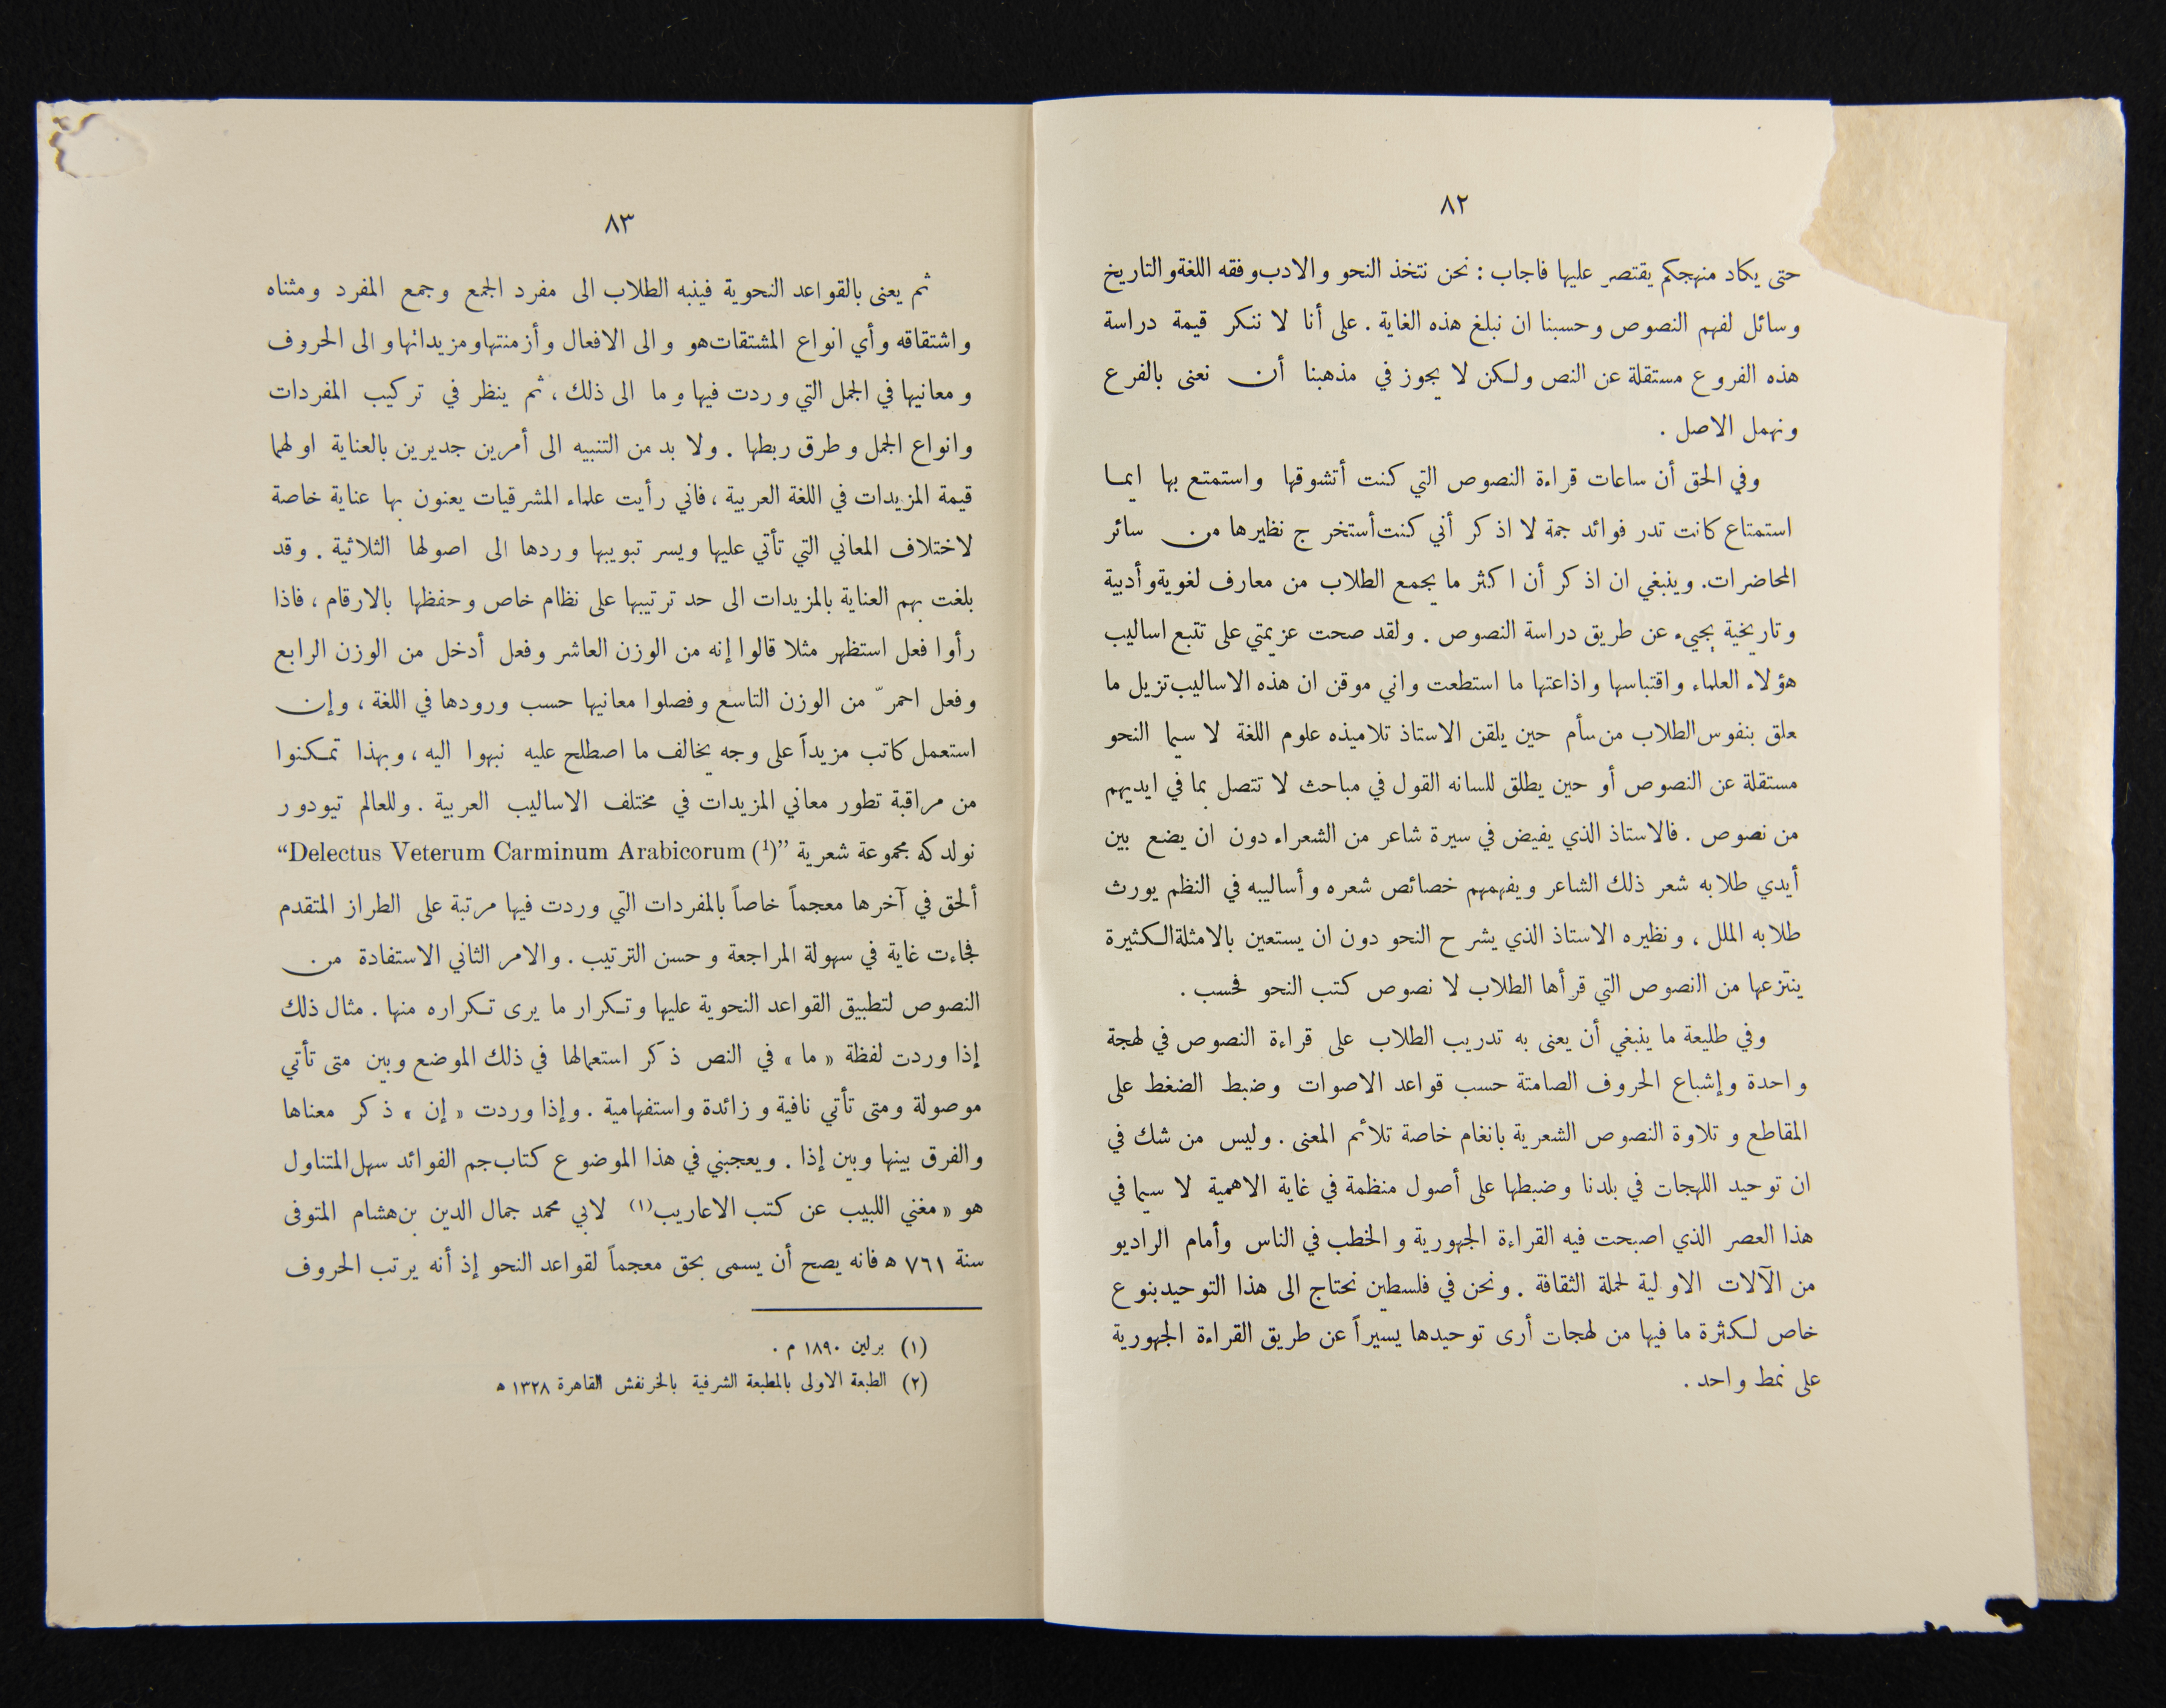 ٨٢
حتى يكاد منهجكم يقتصر عليها فاجاب : نحن نتخذ النحو والادب وفقه اللغة والتاريخ
وسائل لفهم النصوص وحسبنا ان نبلغ هذه الغاية . على أنا لا ننكر قيمة دراسة
هذه الفروع مستقلة عن النص ولكن لا يجوز في مذهبنا أن نعنى بالفرع
ونهمل الاصل .
وفي الحق أن ساعات قراءة النصوص التي كنت أتشوقها واستمتع بها ايما
استمتاع كانت تدر فوائد جمة لا اذكر أني كنت أستخرج نظيرها من سائر
المحاضرات . وينبغي ان اذكر أن اكثر ما يجمع الطلاب من معارف لغوية وأدبية
وتاريخية يجيء عن طريق دراسة النصوص . ولقد صحت عزيمتي على تتبع اساليب
هؤلاء العلماء واقتباسها واذاعتها ما استطعت واني موقن ان هذه الاساليب تزيل ما
علق بنفوس الطلاب من سأم حين يلقن الاستاذ تلاميذه علوم اللغة لا سيما النحو
مستقلة عن النصوص أو حين يطلق للسانه القول في مباحث لا تتصل بما في ايديهم
من نصوص . فالاستاذ الذي يفيض في سيرة شاعر من الشعراء دون ان يضع بين
أيدي طلابه شعر ذلك الشاعر ويفهمهم خصائص شعره وأساليبه في النظم يورث
طلابه الملل ، ونظيره الاستاذ الذي يشرح النحو دون ان يستعين بالامثلة الكثيرة
ينتزعها من النصوص التي قرأها الطلاب لا نصوص كتب النحو فحسب .
وفي طليعة ما ينبغي أن يعنى به تدريب الطلاب على قراءة النصوص في لهجة
واحدة وإشباع الحروف الصامتة حسب قواعد الاصوات وضبط الضغط على
المقاطع وتلاوة النصوص الشعرية بانغام خاصة تلائم المعنى . وليس من شك في
ان توحيد اللهجات في بلدنا وضبطها على أصول منظمة في غاية الاهمية لا سيما في
هذا العصر الذي اصبحت فيه القراءة الجهورية والخطب في الناس وأمام الراديو
من الآلات الاولية لحملة الثقافة . ونحن في فلسطين نحتاج الى هذا التوحيد بنوع
خاص لكثرة ما فيها من لهجات أرى توحيدها يسيراً عن طريق القراءة الجهورية
على نمط واحد .
٨٣
ثم يعنى بالقواعد النحوية فينبه الطلاب الى مفرد الجمع وجمع المفرد ومثناه
واشتقاقه وأي انواع المشتقات هو والى الافعال وأزمنتها ومزيداتها والى الحروف
ومعانيها في الجمل التي وردت فيها وما الى ذلك ، ثم ينظر في تركيب المفردات
وانواع الجمل وطرق ربطها . ولا بد من التنبيه الى أمرين جديرين بالعناية اولهما
قيمة المزيدات في اللغة العربية ، فاني رأيت علماء المشرقيات يعنون بها عناية خاصة
لاختلاف المعاني التي تأتي عليها ويسر تبويبها وردها الى اصولها الثلاثية . وقد
بلغت بهم العناية بالمزيدات الى حد ترتيبها على نظام خاص وحفظها بالارقام ، فاذا
رأوا فعل استظهر مثلا قالوا إنه من الوزن العاشر وفعل أدخل من الوزن الرابع
وفعل احمرّ من الوزن التاسع وفصلوا معانيها حسب ورودها في اللغة ، وإن
استعمل كاتب مزيداً على وجه يخالف ما اصطلح عليه نبهوا اليه ، وبهذا تمكنوا
من مراقبة تطور معاني المزيدات في مختلف الاساليب العربية . وللعالم تيودور
نولدكه مجموعة شعرية “Delectus Veterum Carminum Arabicorum (¹)”
ألحق في آخرها معجماً خاصاً بالمفردات التي وردت فيها مرتبة على الطراز المتقدم
فجاءت غاية في سهولة المراجعة وحسن الترتيب . والامر الثاني الاستفادة من
النصوص لتطبيق القواعد النحوية عليها وتكرار ما يرى تكراره منها . مثال ذلك
إذا وردت لفظة « ما » في النص ذكر استعمالها في ذلك الموضع وبين متى تأتي
موصولة ومتى تأتي نافية وزائدة واستفهامية . وإذا وردت « إن » ذكر معناها
والفرق بينها وبين إذا . ويعجبني في هذا الموضوع كتاب جم الفوائد سهل المتناول
هو « مغني اللبيب عن كتب الاعاريب (١) لابي محمد جمال الدين بن هشام المتوفى
سنة ٧٦١ ه فانه يصح أن يسمى بحق معجماً لقواعد النحو إذ أنه يرتب الحروف
(١) برلين ١٨٩٠ م .
(٢) الطبعة الاولى بالمطبعة الشرفية بالخرنفش القاهرة ١٣٢٨ ه